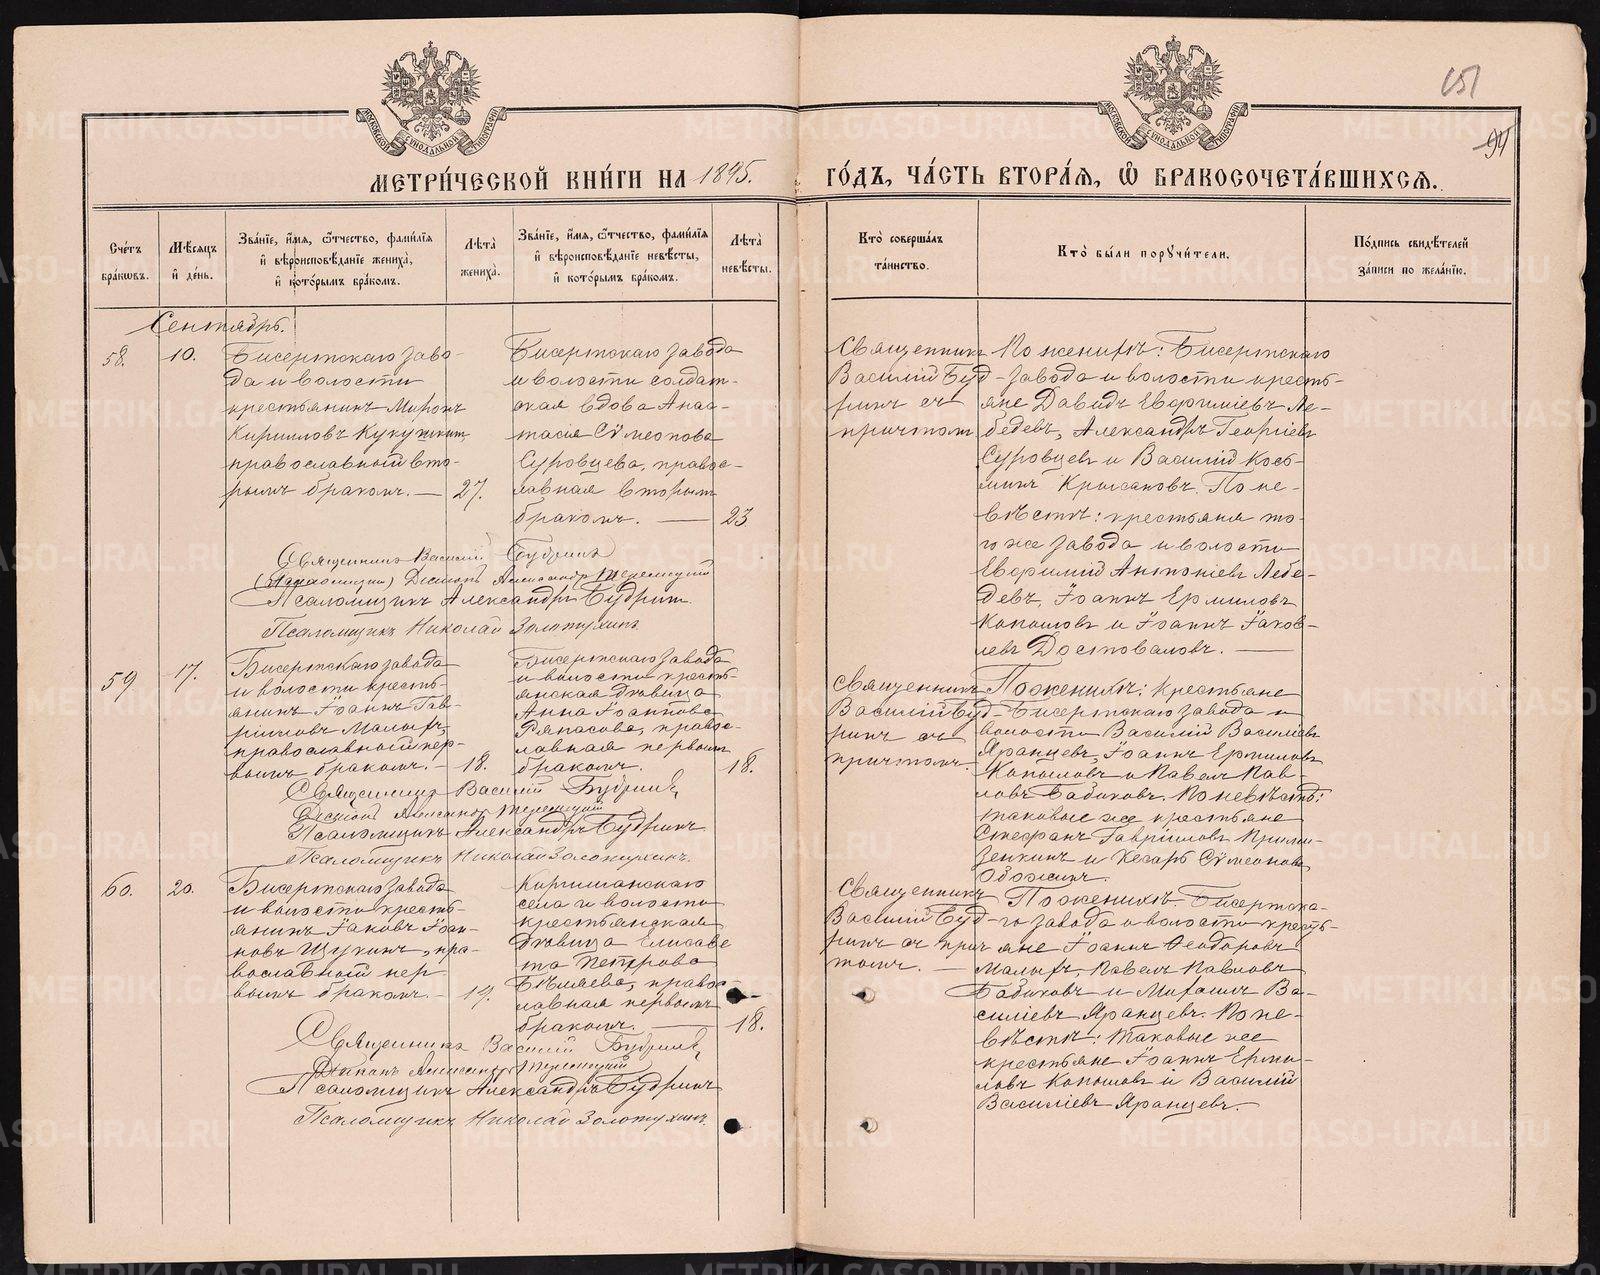 151
94
МЕТРИ́ЧЕСКОЙ КНИ́ГИ НА 1895.
ГО́ДЪ, ЧА́СТЬ ВТОРА́Я, Ѽ БРАКОСОЧЕТА́ВШИХСЯ.
Сче́тъ бра́ковъ.
Мѣ́сяцъ и҆ де́нь.
Зва́нїе, и҆́мя, ѻ҆́тчество, фами́лїя и҆ вѣроисповѣ́данїе жениха̀, и҆ кото́рымъ бра́комъ.
Лѣта̀ жениха̀.
Зва́нїе, и҆́мя, ѻ҆́тчество, фами́лїя и҆ вѣроисповѣ́данїе невѣ́сты, и҆ кото́рымъ бра́комъ.
Лѣта̀ невѣ́сты.
Кто̀ соверша́лъ та́инство.
Кто̀ бы́ли порꙋчи́тели.
По́дпись свидѣ́телей за́писи по жела́нїю.
Сентябрь.
58.
10.
Бисертскаго заво-
да и волости
крестьянинъ Миронъ
Кирилловъ
православный вто-
рымъ бракомъ. —
27.
Бисертскаго завода
и волости солдат-
ская вдова Анас-
тасія Сѵмеонова
Суровцева, правос-
лавная вторымъ
бракомъ. —
23
Священникъ
Василій Буд-
ринъ съ
причтомъ
По женихѣ: Бисертскаго
завода и волости кресть-
яне Давидъ Евфиміевъ Ле-
бедевъ, Александръ Георгіевъ
Суровцевъ и Василій Кось-
минъ Крысановъ. По не-
вѣстѣ: крестьяня то-
го же завода и волости
Евфимій Антоніевъ Лебе-
девъ, Іоаннъ Ермиловъ
Копыловъ и Іоаннъ Іаков-
левъ Достоваловъ. —
Священникъ Василій Будринъ
Діаконъ Александръ
Псаломщикъ Александръ Будрин.
Псаломщикъ Николай Золотухинъ.
59
17.
Бисертскаго завода
и волости кресть-
янинъ Іоаннъ Гав-
риловъ Малыхъ,
православный пер-
вымъ бракомъ. —
18.
Бисертскаго завода
и волости кресть-
янская дѣвица
Анна Іоаннова
Ряпасова, правос-
лавная первымъ
бракомъ.
18.
Священникъ
Василій Буд-
ринъ съ
причтомъ.
По женихѣ: крестьяне
Бисертскаго завода и
волости Василій Василіевъ
Яранцевъ, Іоаннъ Ермиловъ
Копыловъ и Павелъ Пав-
ловъ Бабиковъ. По невѣстѣ:
таковые же крестьяне
Стефанъ Гавріиловъ
и Кесарь Сѵмеоновъ
Священникъ Василій Будринъ,
Діаконъ Александръ
Псаломщикъ Александръ Будринъ
Псаломщикъ Николай Золотухинъ.
60.
20.
Бисертскаго завода
и волости кресть-
янинъ Іаковъ Іоан-
новъ Щукинъ, пра-
вославный пер
вымъ бракомъ. —
19.
Киргишанскаго
села и волости
крестьянская
дѣвица Елисаве
та Петрова
Бѣляева, правос-
лавная первымъ
бракомъ. —
18.
Священникъ
Василій Буд-
ринъ съ прич
томъ. —
По женихѣ Бисертска-
го завода и волости кресть-
яне Іоаннъ Ѳеодоровъ
Малыхъ, Павелъ Павловъ
Бабиковъ и Михаилъ Ва-
силіевъ Яранцевъ. По не-
вѣстѣ: таковые же
крестьяне Іоаннъ Ерми-
ловъ Копыловъ и Василій
Василіевъ Яранцевъ.
Священникъ Василій Будринъ,
Діаконъ Александръ
Псаломщикъ Александръ Будринъ
Псаломщикъ Николай Золотухинъ.
METRIKI.GASO-URAL.RU